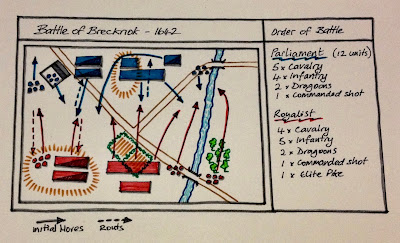 Battle of Brecknok - 1642
Order of Battle
Parliament (12 units)
5 x Cavalry
4 x Infantry
2 x Dragoons
1 x Commanded shot
Royalist
4 x Cavalry
5 x Infantry
2 x Dragoons
1 x Commanded shot
1 x Elite Pike
Initial Moves
Routs